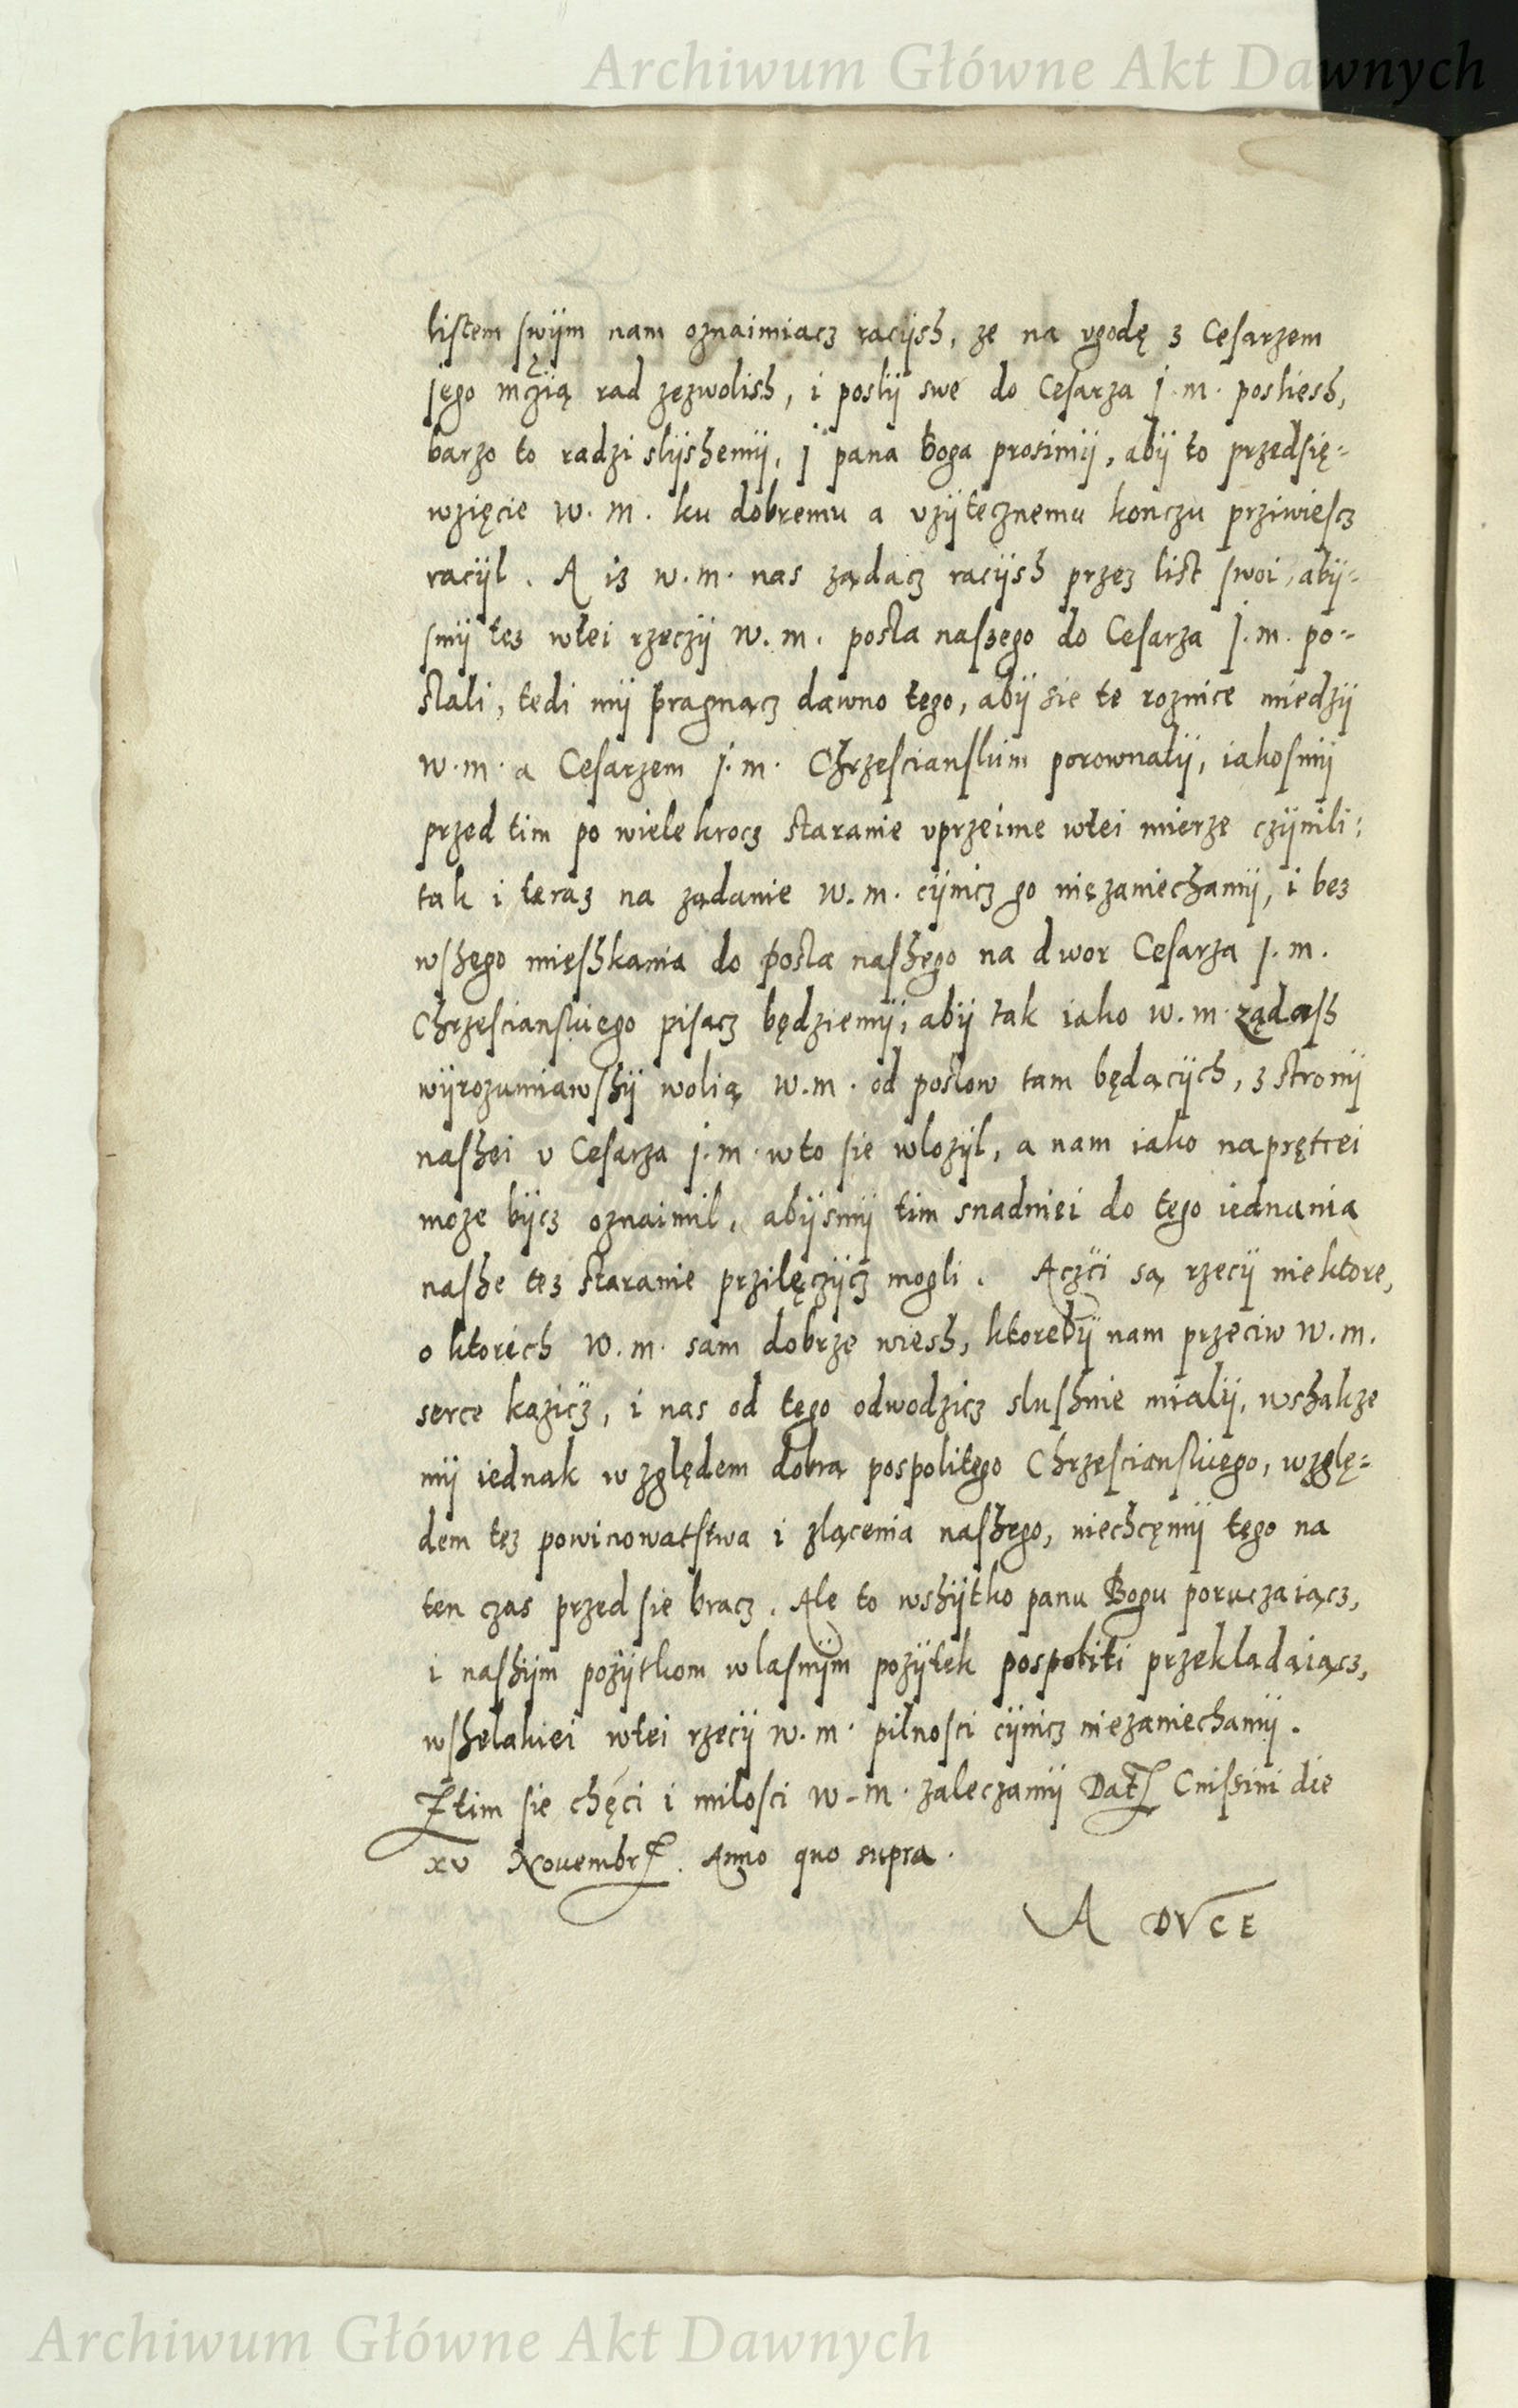 Archiwum Główne Akt Dawnych
listem swÿm nam oznaimiacz racÿsh, ze na vgodę z Cesarzem
jego mczią rad zezwolish, i poslÿ swe do Cesarza j. m. posliesh,
barzo to radzi slÿshemÿ, j pana boga prosimÿ, abÿ to przedsię-
wzięcie w. m. ku dobremu a vzÿtecznemu konczu prziwiescz
racÿl. A iz w. m. nas ządacz racÿsh przez list swoi, abÿ-
smÿ tez wtei rzeczÿ w. m. posla naszego do Cesarza j. m. po-
slali, tedi mÿ pragnącz dawno tego, abÿ sie te roznice miedzÿ
w. m. a Cesarzem j. m. Chrzescianskim porownalÿ, iakosmÿ
przed tim po wielekrocz staranie vprzeime wtei mierze czÿnili:
tak i teraz na ządanie w. m. cÿnicz go niezaniechamÿ, i bez
wshego mieshkania do posla nashego na dwor Cesarza j. m.
Chrzescianskiego pisacz będziemÿ, abÿ tak iako w. m. ządash
wÿrozumiawshÿ wolią w. m. od poslow tam będącÿch, z stronÿ
nashei v Cesarza j. m. wto sie wlozÿl, a nam iako naprętcei
moze bÿcz oznaimil, abÿsmÿ tim snadniei do tego iednania
nashe tez staranie przilęczÿcz mogli. Aczci są rzecÿ niektore,
o ktorich w. m. sam dobrze wiesh, ktorebÿ nam przeciw w. m.
serce kazicz, i nas od tego odwodzicz slushnie mialÿ, wshakze
mÿ iednak względem dobra pospolitego Chrzescianskiego, wzglę-
dem tez powinowatstwa i zlącenia nashego, niechcemÿ tego na
ten czas przed sie bracz. Ale to wshÿtko panu Bogu poruczaiącz,
i nashÿm pozÿtkom wlasnÿm pozÿtek pospoliti przekladaiącz,
wshelakiei wtei rzecÿ w. m. pilnosci cÿnicz niezaniechamÿ.
Ztim sie chęci i milosci w. m. zaleczamÿ Datʒ Cnissini die
xv Novembrʒ. Anno quo supra.
A DVCE
Archiwum Główne Akt Dawnych